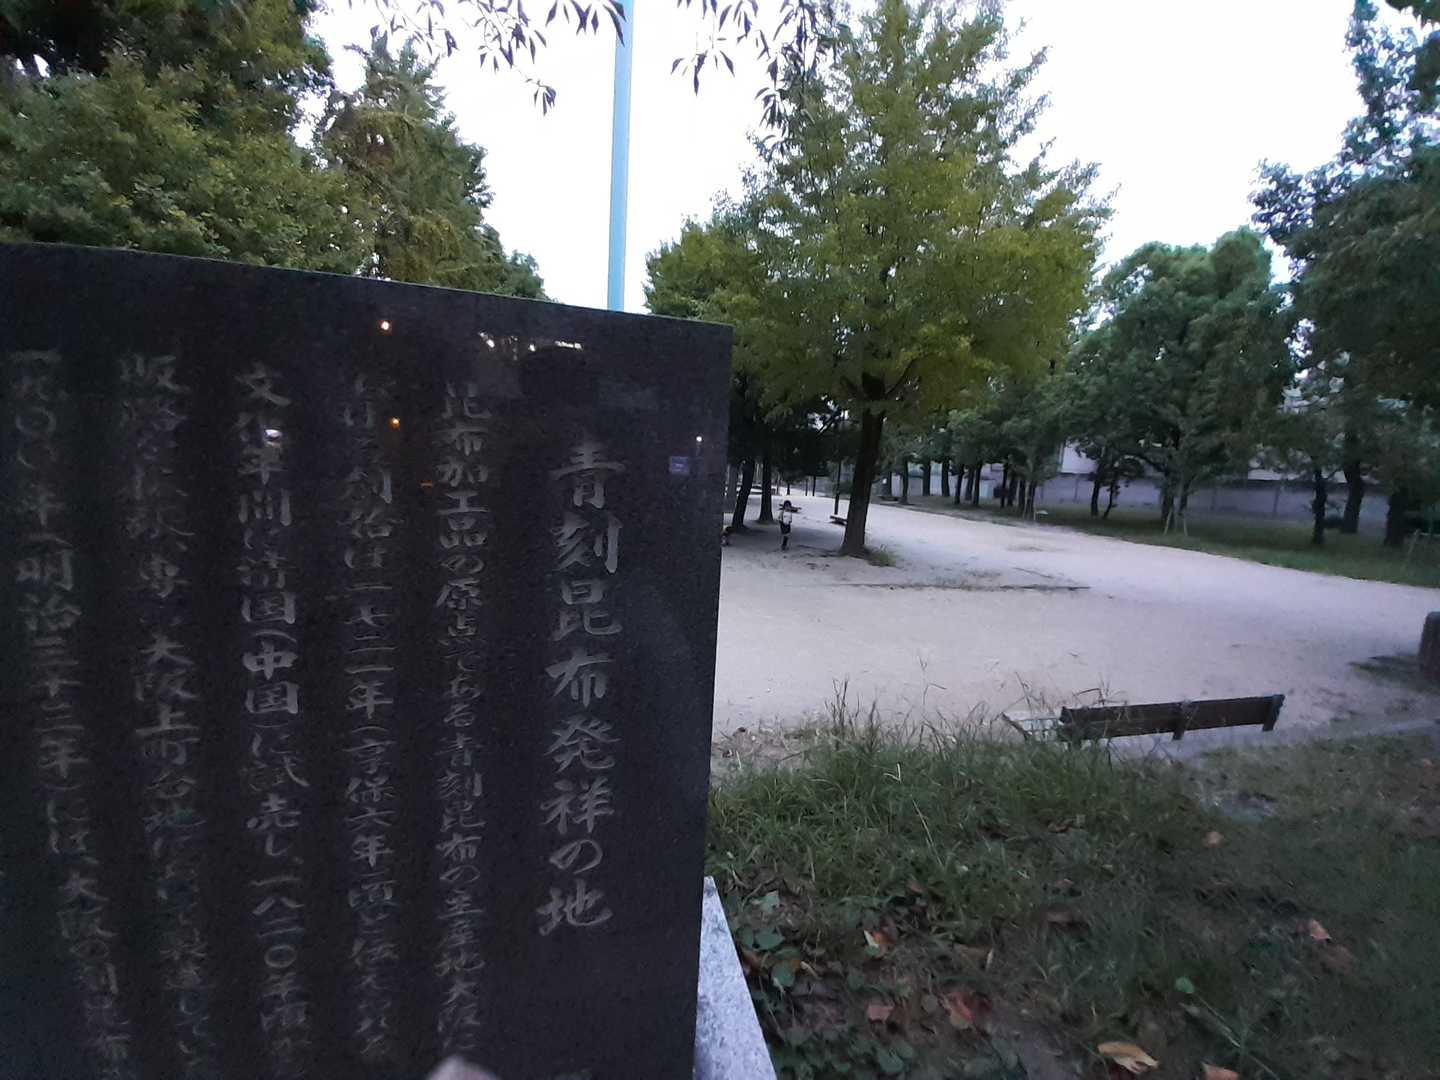 青刻昆布発祥の地
昆布加工品の原点である青刻昆布の主産地大阪に
おける創始は一七二一年(享保六年)頃と伝えられる
文化年間に清国(中国)に試売し、一八二〇年頃
販路を
専
大阪上町台地
製造して
一九〇〇年(明治三十三年)には、大阪の刻昆布